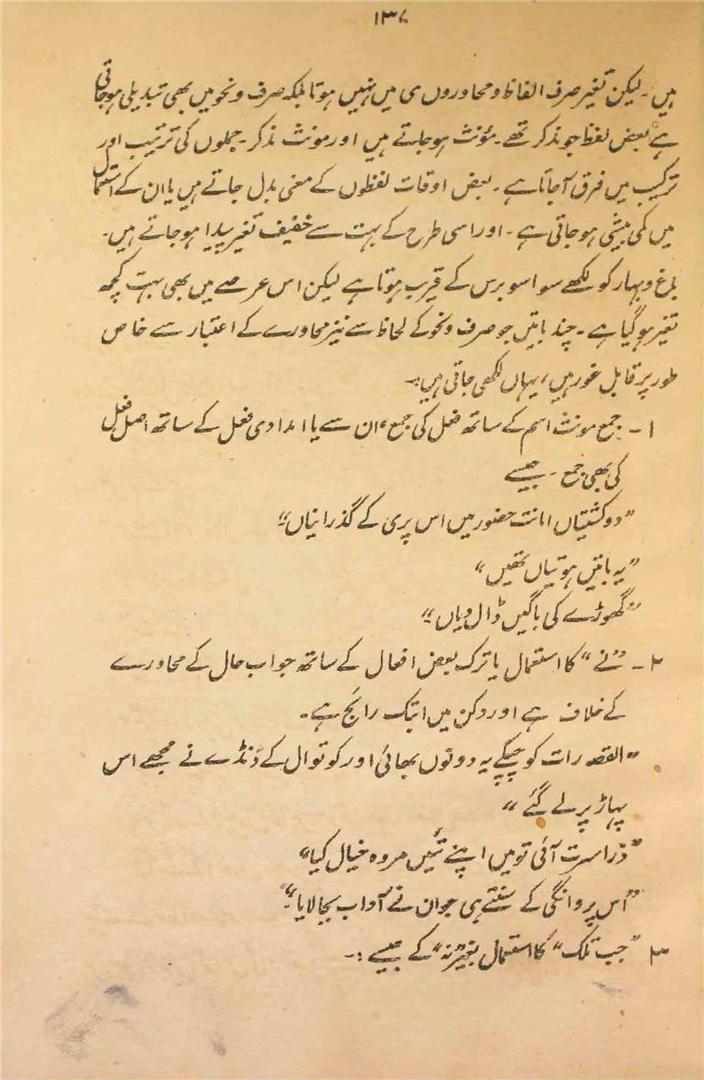 ۱۳۷
ہیں۔ لیکن تغیر صرف الفاظ و محاوروں ہی میں نہیں ہوتا بلکہ صرف و نحو میں بھی تبدیلی ہوجاتی
ہے بعض لفظ جو مذکر تھے۔ مؤنث ہوجاتے ہیں اور مونث مذکر۔ جملوں کی ترتیب اور
ترکیب میں فرق آجاتا ہے۔ بعض اوقات لفظوں کے معنی بدل جاتے ہیں یا ان کے استعمال
میں کمی بیشی ہوجاتی ہے۔ اور اسی طرح کے بہت سے خفیف تغیر پیدا ہوجاتے ہیں۔
باغ و بہار کو لکھے سوا سو برس کے قریب ہوتا ہے لیکن اس عرصے میں بھی بہت کچھ
تغیر ہوگیا ہے۔ چند باتیں جو صرف و نحو کے لحاظ سے نیز محاورے کے اعتبار سے خاص
طور پر قابل غور ہیں، یہاں لکھی جاتی ہیں:۔
۱۔ جمع مونث اسم کے ساتھ فعل کی جمع، ان سے یا امدادی فعل کے ساتھ اصل فعل
کی بھی جمع۔ جیسے
”دو کشتیاں امانت حضور میں اس پری کے گذرانیاں“
”یہ باتیں ہوتیاں تھیں“
”گھوڑے کی باگیں ڈال دیاں“
۲۔ ”نے“ کا استعمال یا ترک بعض افعال کے ساتھ جو اب حال کے محاورے
کے خلاف ہے اور دکن میں اب تک رائج ہے۔
”القصہ رات کو چپکے یہ دونوں بھائی اور کوتوال کے ڈنڈے نے مجھے اس
پہاڑ پر لے گئے“
”ذرا سرت آئی تو میں اپنے تئیں مردہ خیال کیا“
”اس پروانگی کے سنتے ہی جوان نے آداب بجا لایا“
۳ ”جب تلک“ کا استعمال بغیر ”نہ“ کے جیسے:۔